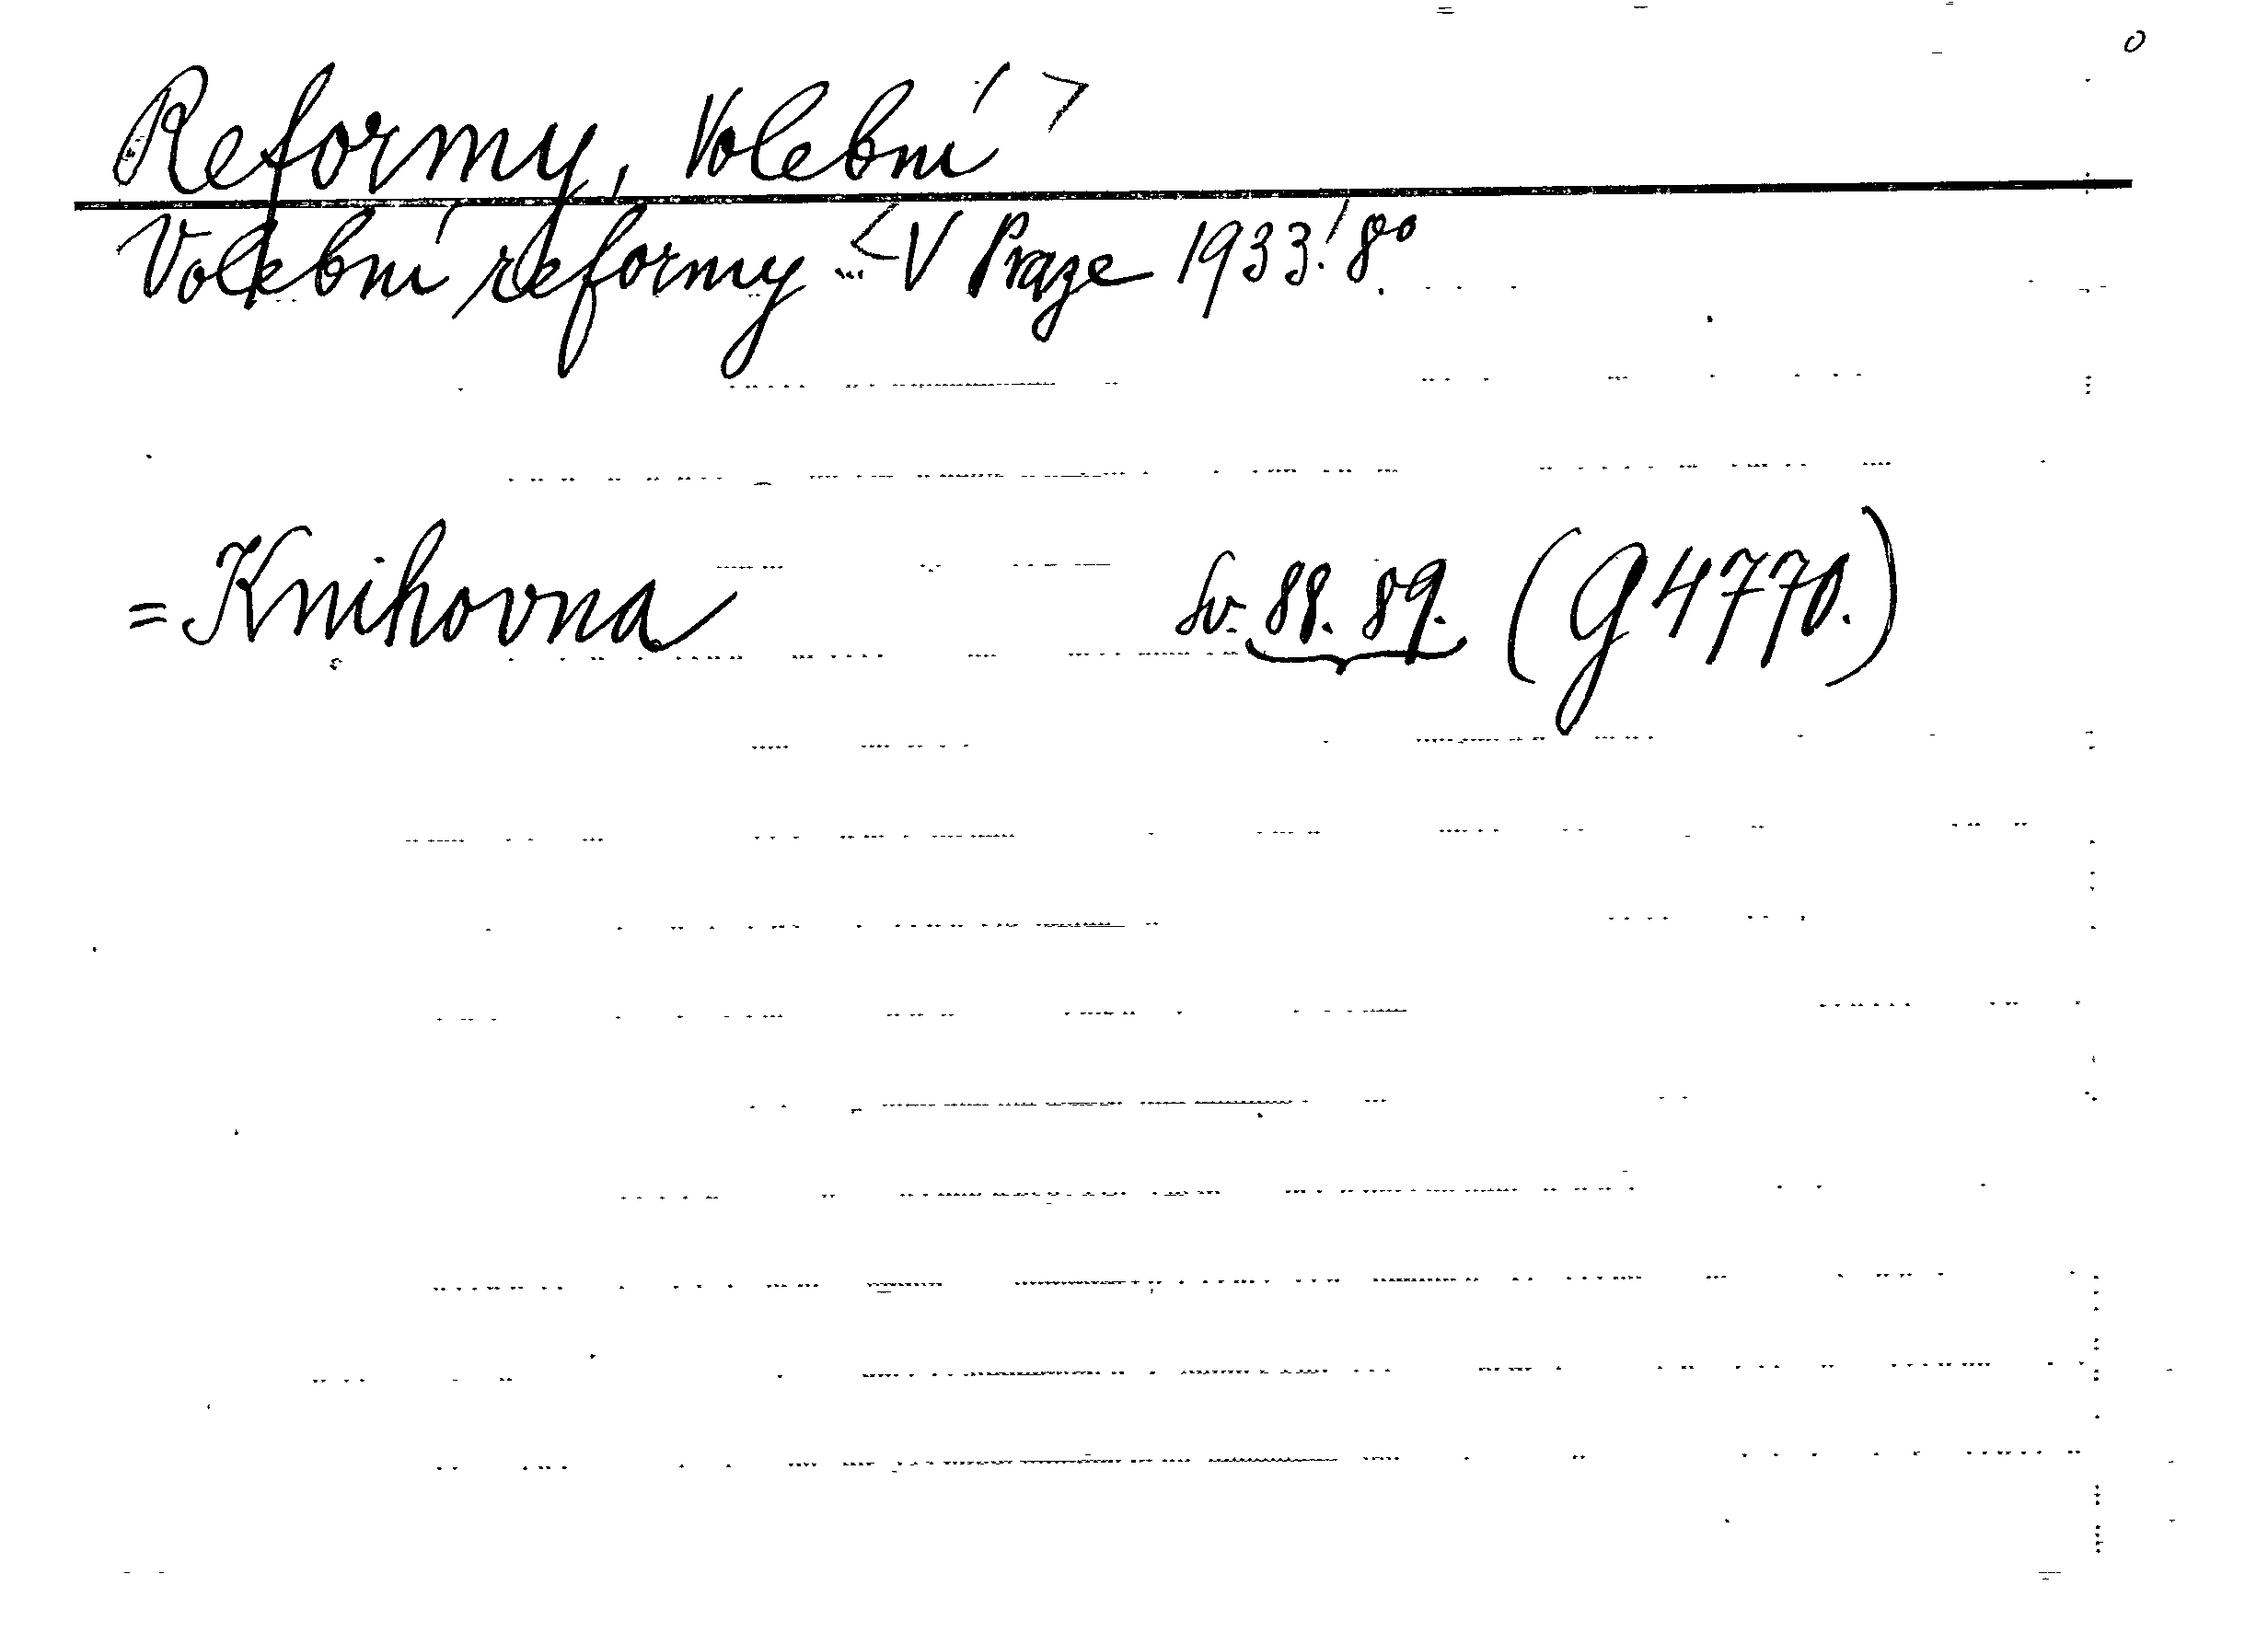 Reformy, Volební >
Volební reformy ... < V Praze 1933. 8°.
= Knihovna sv. 88. 89. (G 4770.)